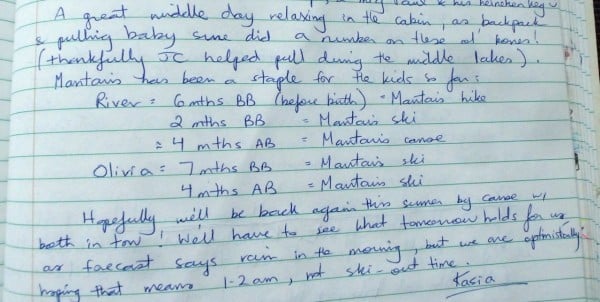 & his heineken keg
A great middle day relaxing in the cabin, as backpack
& pulling baby sure did a number on these ol' bones!
(thankfully JC helped pull during the middle lakes).
Mantario has been a staple for the kids so far:
River = 6 mths BB (before birth) - Mantario hike
2 mths BB = Mantario ski
= 4 mths AB = Mantario canoe
Olivia = 7 mths BB = Mantario ski
4 mths AB = Mantario ski
Hopefully we'll be back again this summer by canoe w/
both in tow! We'll have to see what tomorrow holds for us
as forecast says rain in the morning, but we are optimistically
hoping that means 1-2 am, not ski-out time.
Kasia